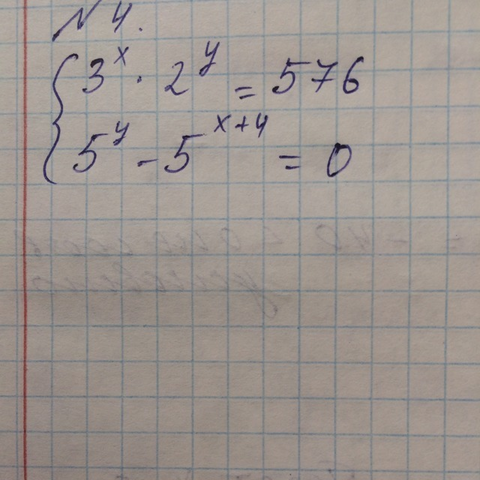 N 4.
3^x · 2^y = 576
5^y - 5^{x+4} = 0